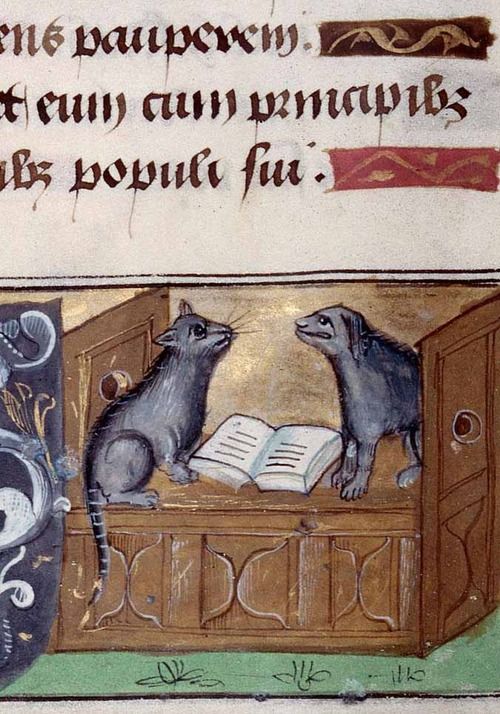 ens pauperem.
et eum cum principibz
ibz populi sui.